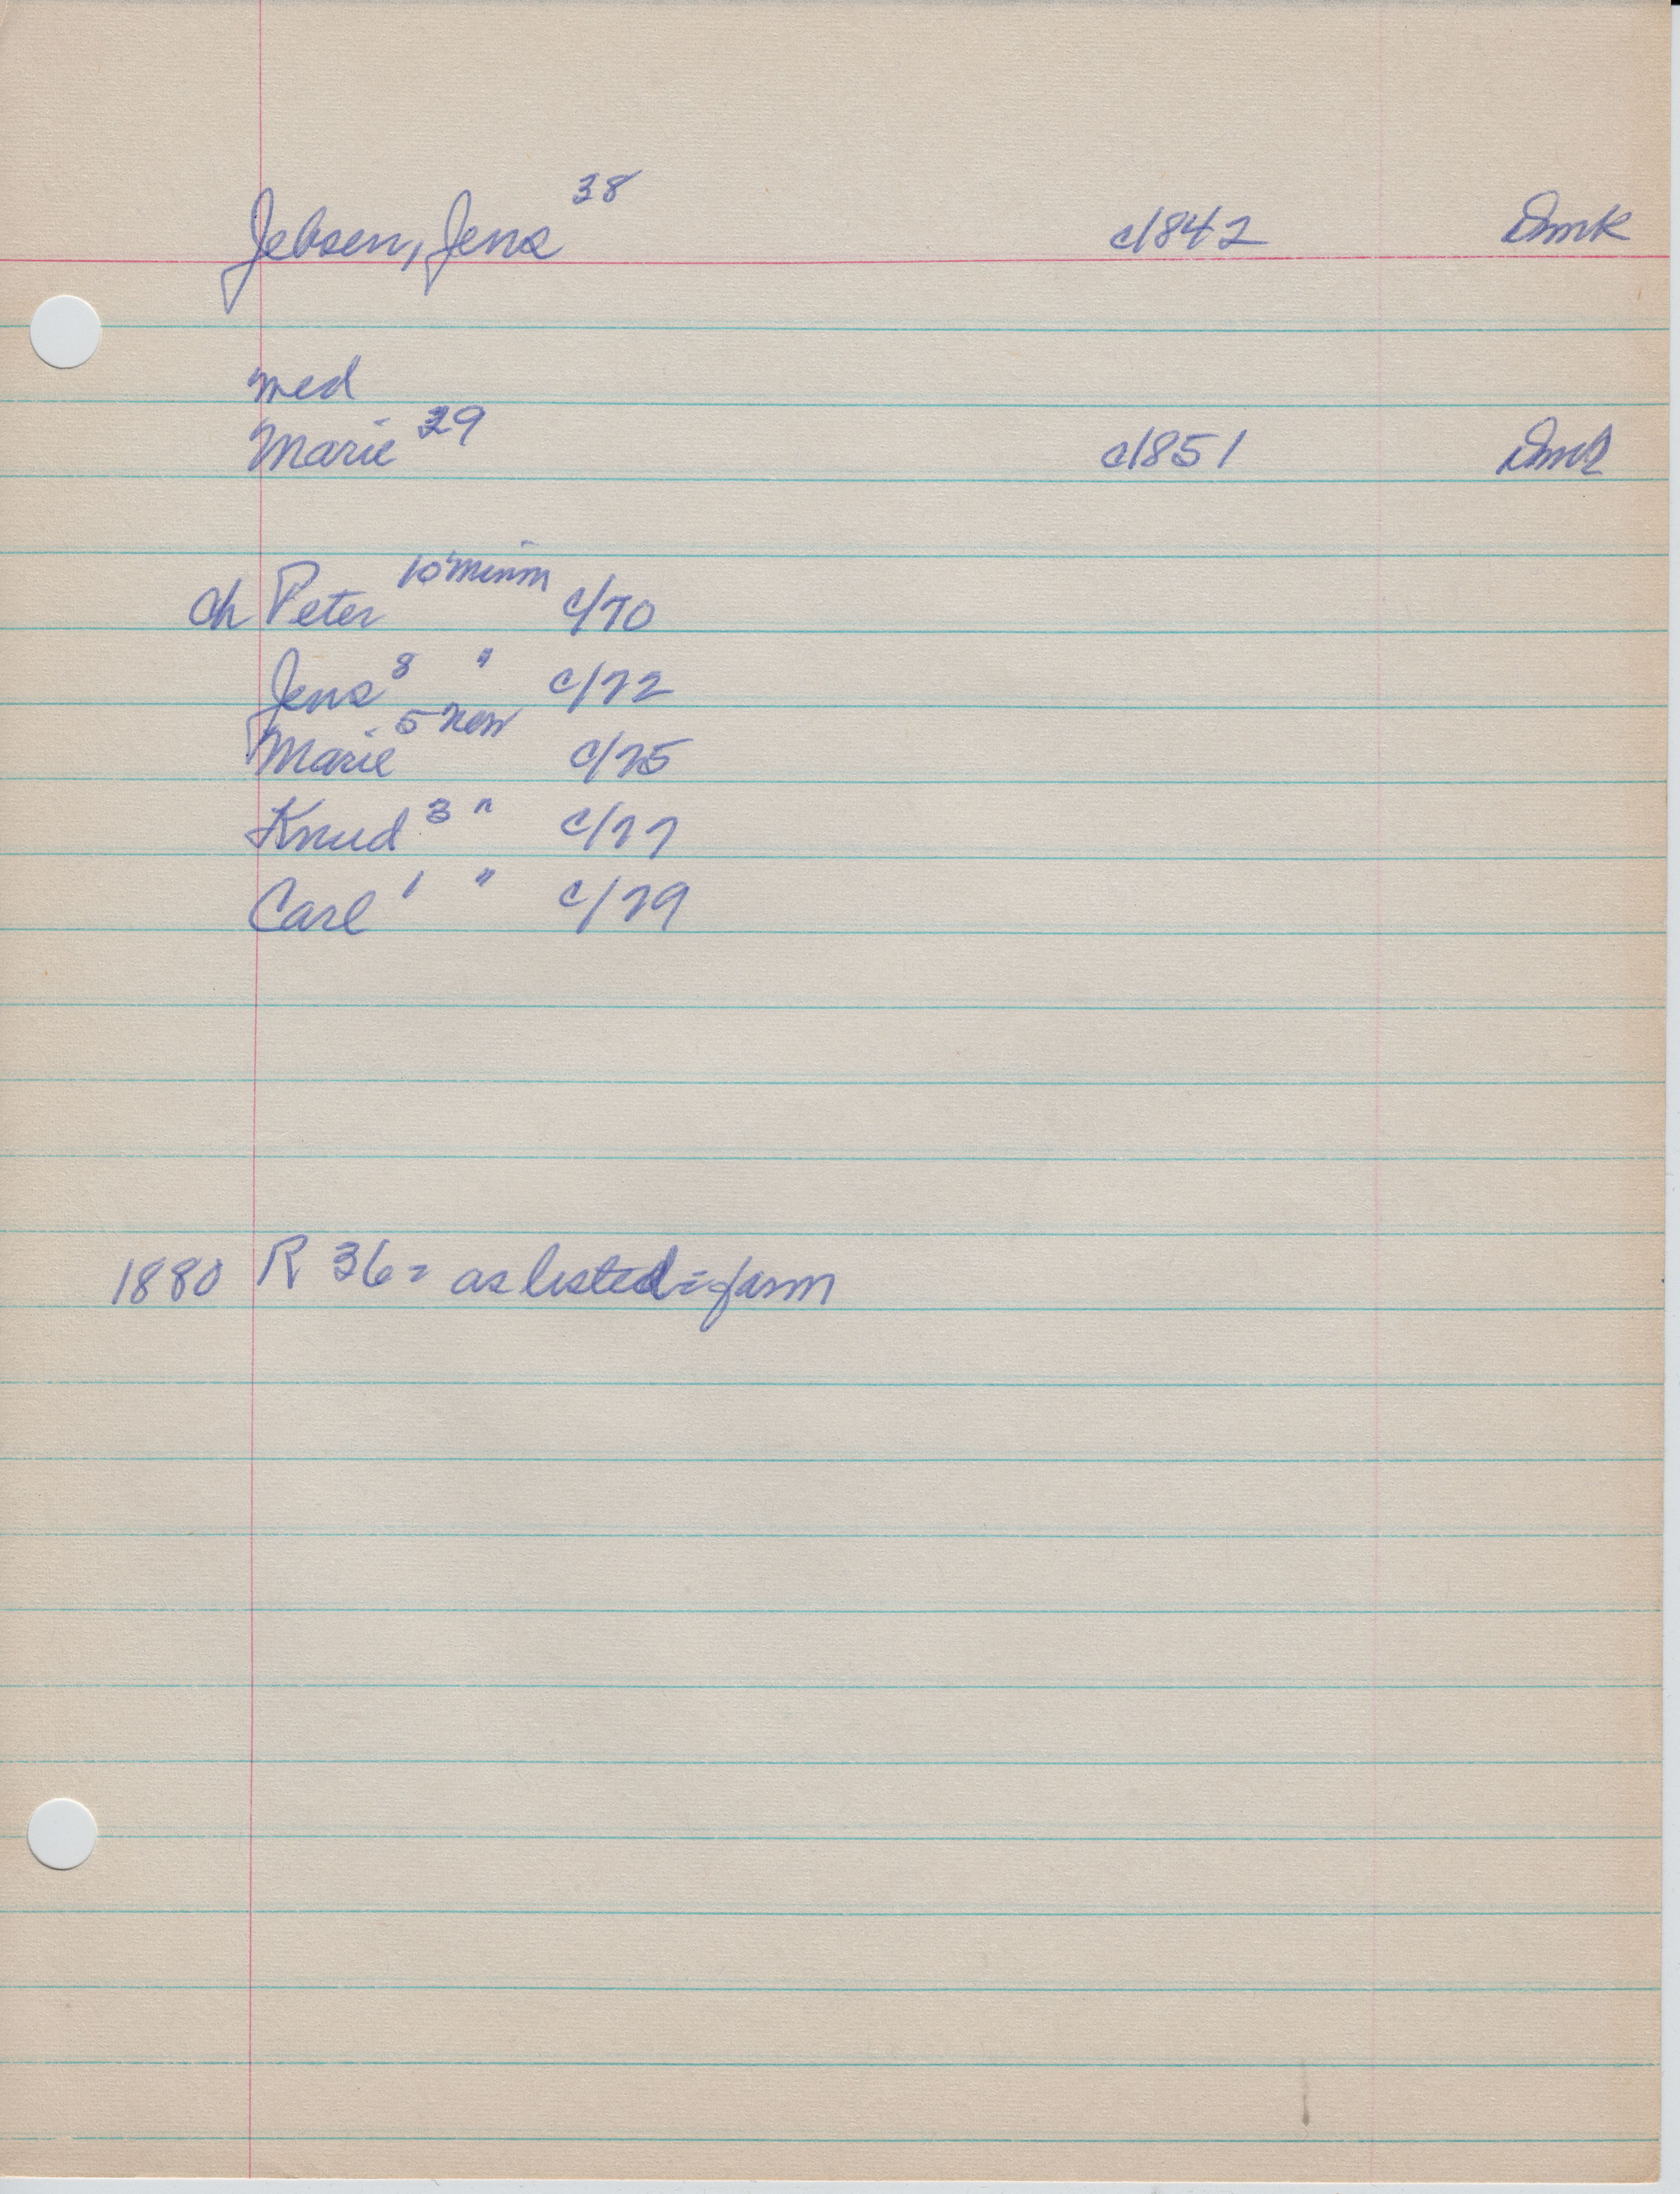 Jebsen, Jens 38 c1842 Dmk
med
Marie 29 c1851 Dmk
ch Peter 10 Minn c/70
Jens 8 " c/72
Marie 5 c/75
Knud 3 " c/77
Carl 1 " c/79
1880 R 36 = as listed = farm